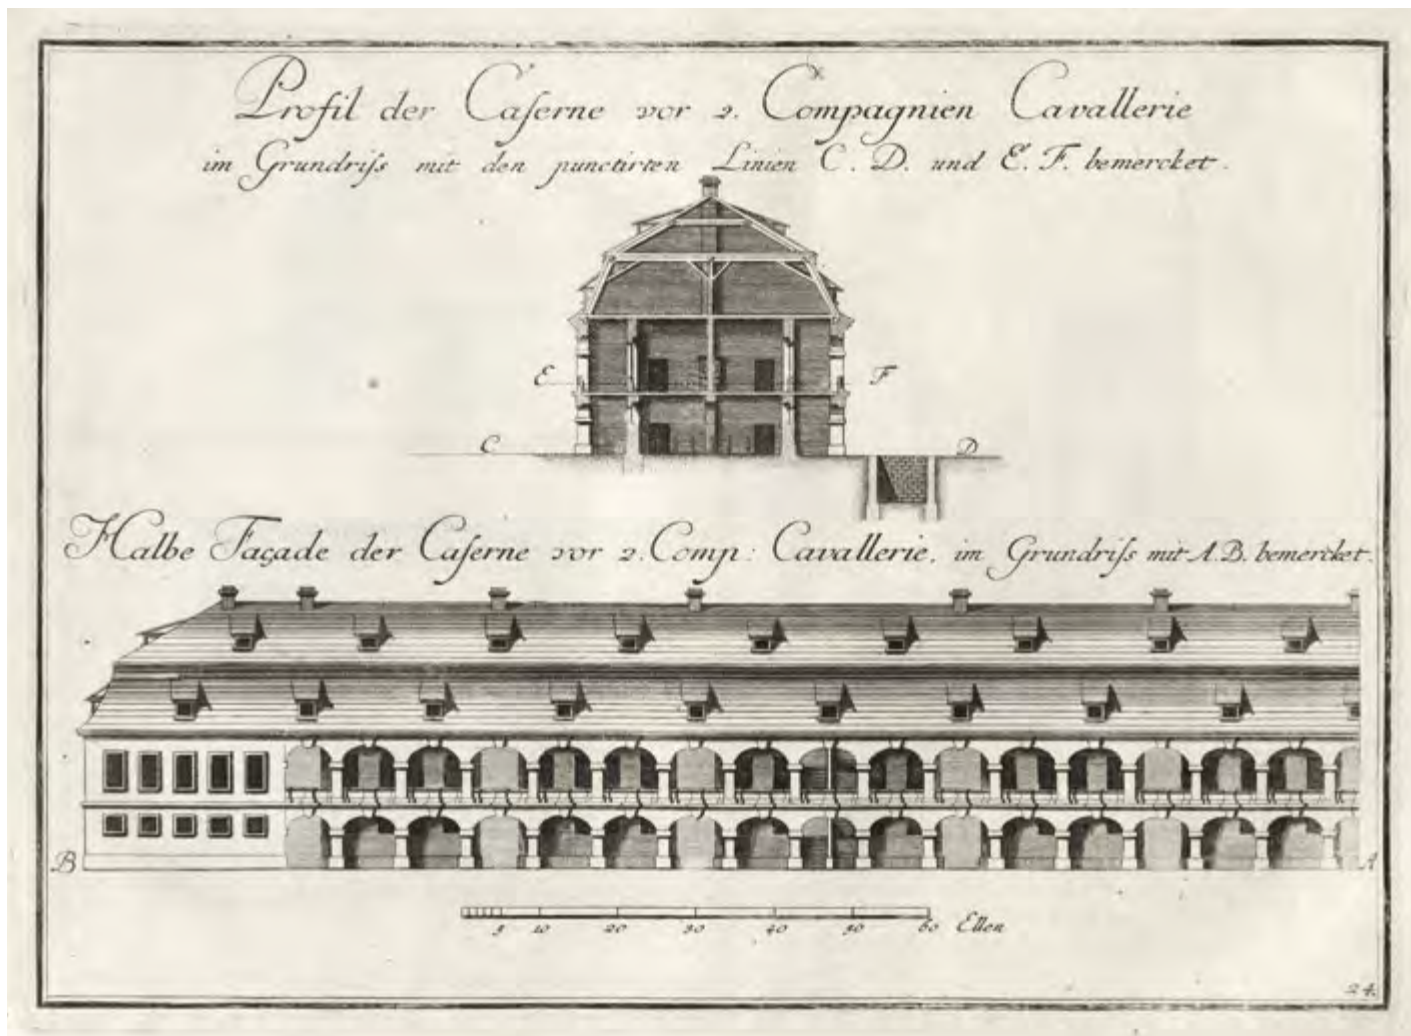 Profil der Caserne vor 2. Compagnien Cavallerie
im Grundriſs mit den punctirten Linien C. D. und E. F. bemercket.
E F
C D
Halbe Façade der Caserne vor 2. Comp: Cavallerie, im Grundriſs mit A. B. bemercket.
B A
5 10 20 30 40 50 60 Ellen
24.